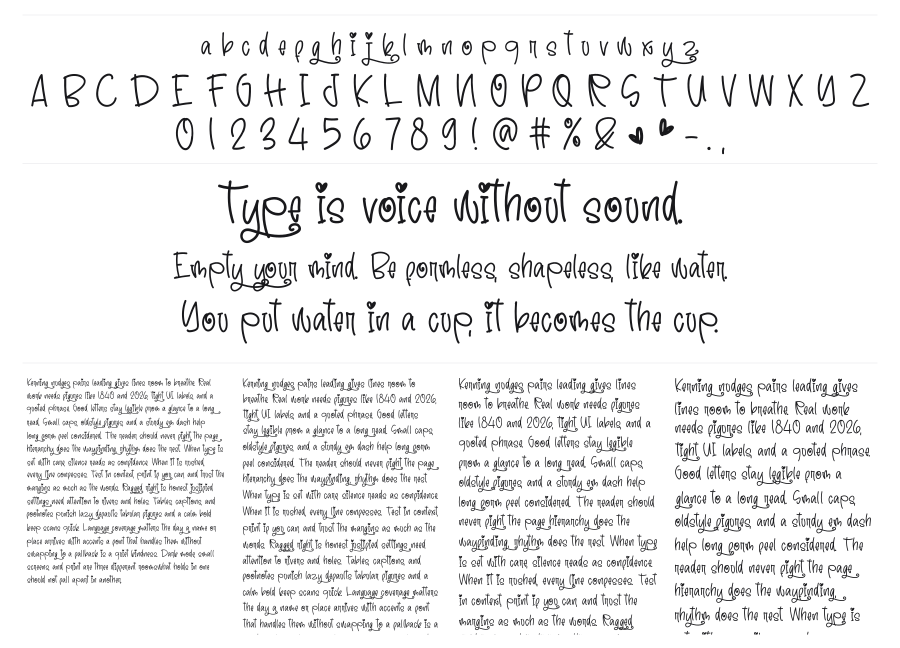 a b c d e f g h i j k l m n o p q r s t u v w x y z
A B C D E F G H I J K L M N O P Q R S T U V W X Y Z
0 1 2 3 4 5 6 7 8 9 ! @ # % & ❤ ❤ - . ,
Type is voice without sound.
Empty your mind. Be formless, shapeless, like water.
You put water in a cup, it becomes the cup.
Kerning nudges pairs leading gives lines room to breathe. Real
work needs figures like 1840 and 2026, tight UI labels, and a
quoted phrase. Good letters stay legible from a glance to a long
read. Small caps, oldstyle figures, and a sturdy em dash help
long form feel considered. The reader should never fight the page
hierarchy does the wayfinding, rhythm does the rest. When type is
set with care silence reads as confidence. When it is rushed,
every line confesses. Test in context, print if you can, and trust the
margins as much as the words. Ragged right is honest justified
settings need attention to rivers and holes. Tables, captions, and
footnotes punish lazy defaults tabular figures and a calm bold
keep scans quick. Language coverage matters the day a name or
place arrives with accents a font that handles them without
swapping to a fallback is a quiet kindness. Dark mode, small
screens, and print are three different rooms what holds in one
should not fall apart in another.
Kerning nudges pairs leading gives lines room to
breathe. Real work needs figures like 1840 and 2026,
tight UI labels, and a quoted phrase. Good letters
stay legible from a glance to a long read. Small caps,
oldstyle figures, and a sturdy em dash help long form
feel considered. The reader should never fight the page
hierarchy does the wayfinding, rhythm does the rest.
When type is set with care silence reads as confidence.
When it is rushed, every line confesses. Test in context,
print if you can, and trust the margins as much as the
words. Ragged right is honest justified settings need
attention to rivers and holes. Tables, captions, and
footnotes punish lazy defaults tabular figures and a
calm bold keep scans quick. Language coverage matters
the day a name or place arrives with accents a font
that handles them without swapping to a fallback is a
Kerning nudges pairs leading gives lines
room to breathe. Real work needs figures
like 1840 and 2026, tight UI labels, and a
quoted phrase. Good letters stay legible
from a glance to a long read. Small caps,
oldstyle figures, and a sturdy em dash help
long form feel considered. The reader should
never fight the page hierarchy does the
wayfinding, rhythm does the rest. When type
is set with care silence reads as confidence.
When it is rushed, every line confesses. Test
in context, print if you can, and trust the
margins as much as the words. Ragged
Kerning nudges pairs leading gives
lines room to breathe. Real work
needs figures like 1840 and 2026,
tight UI labels, and a quoted phrase.
Good letters stay legible from a
glance to a long read. Small caps,
oldstyle figures, and a sturdy em dash
help long form feel considered. The
reader should never fight the page
hierarchy does the wayfinding,
rhythm does the rest. When type is